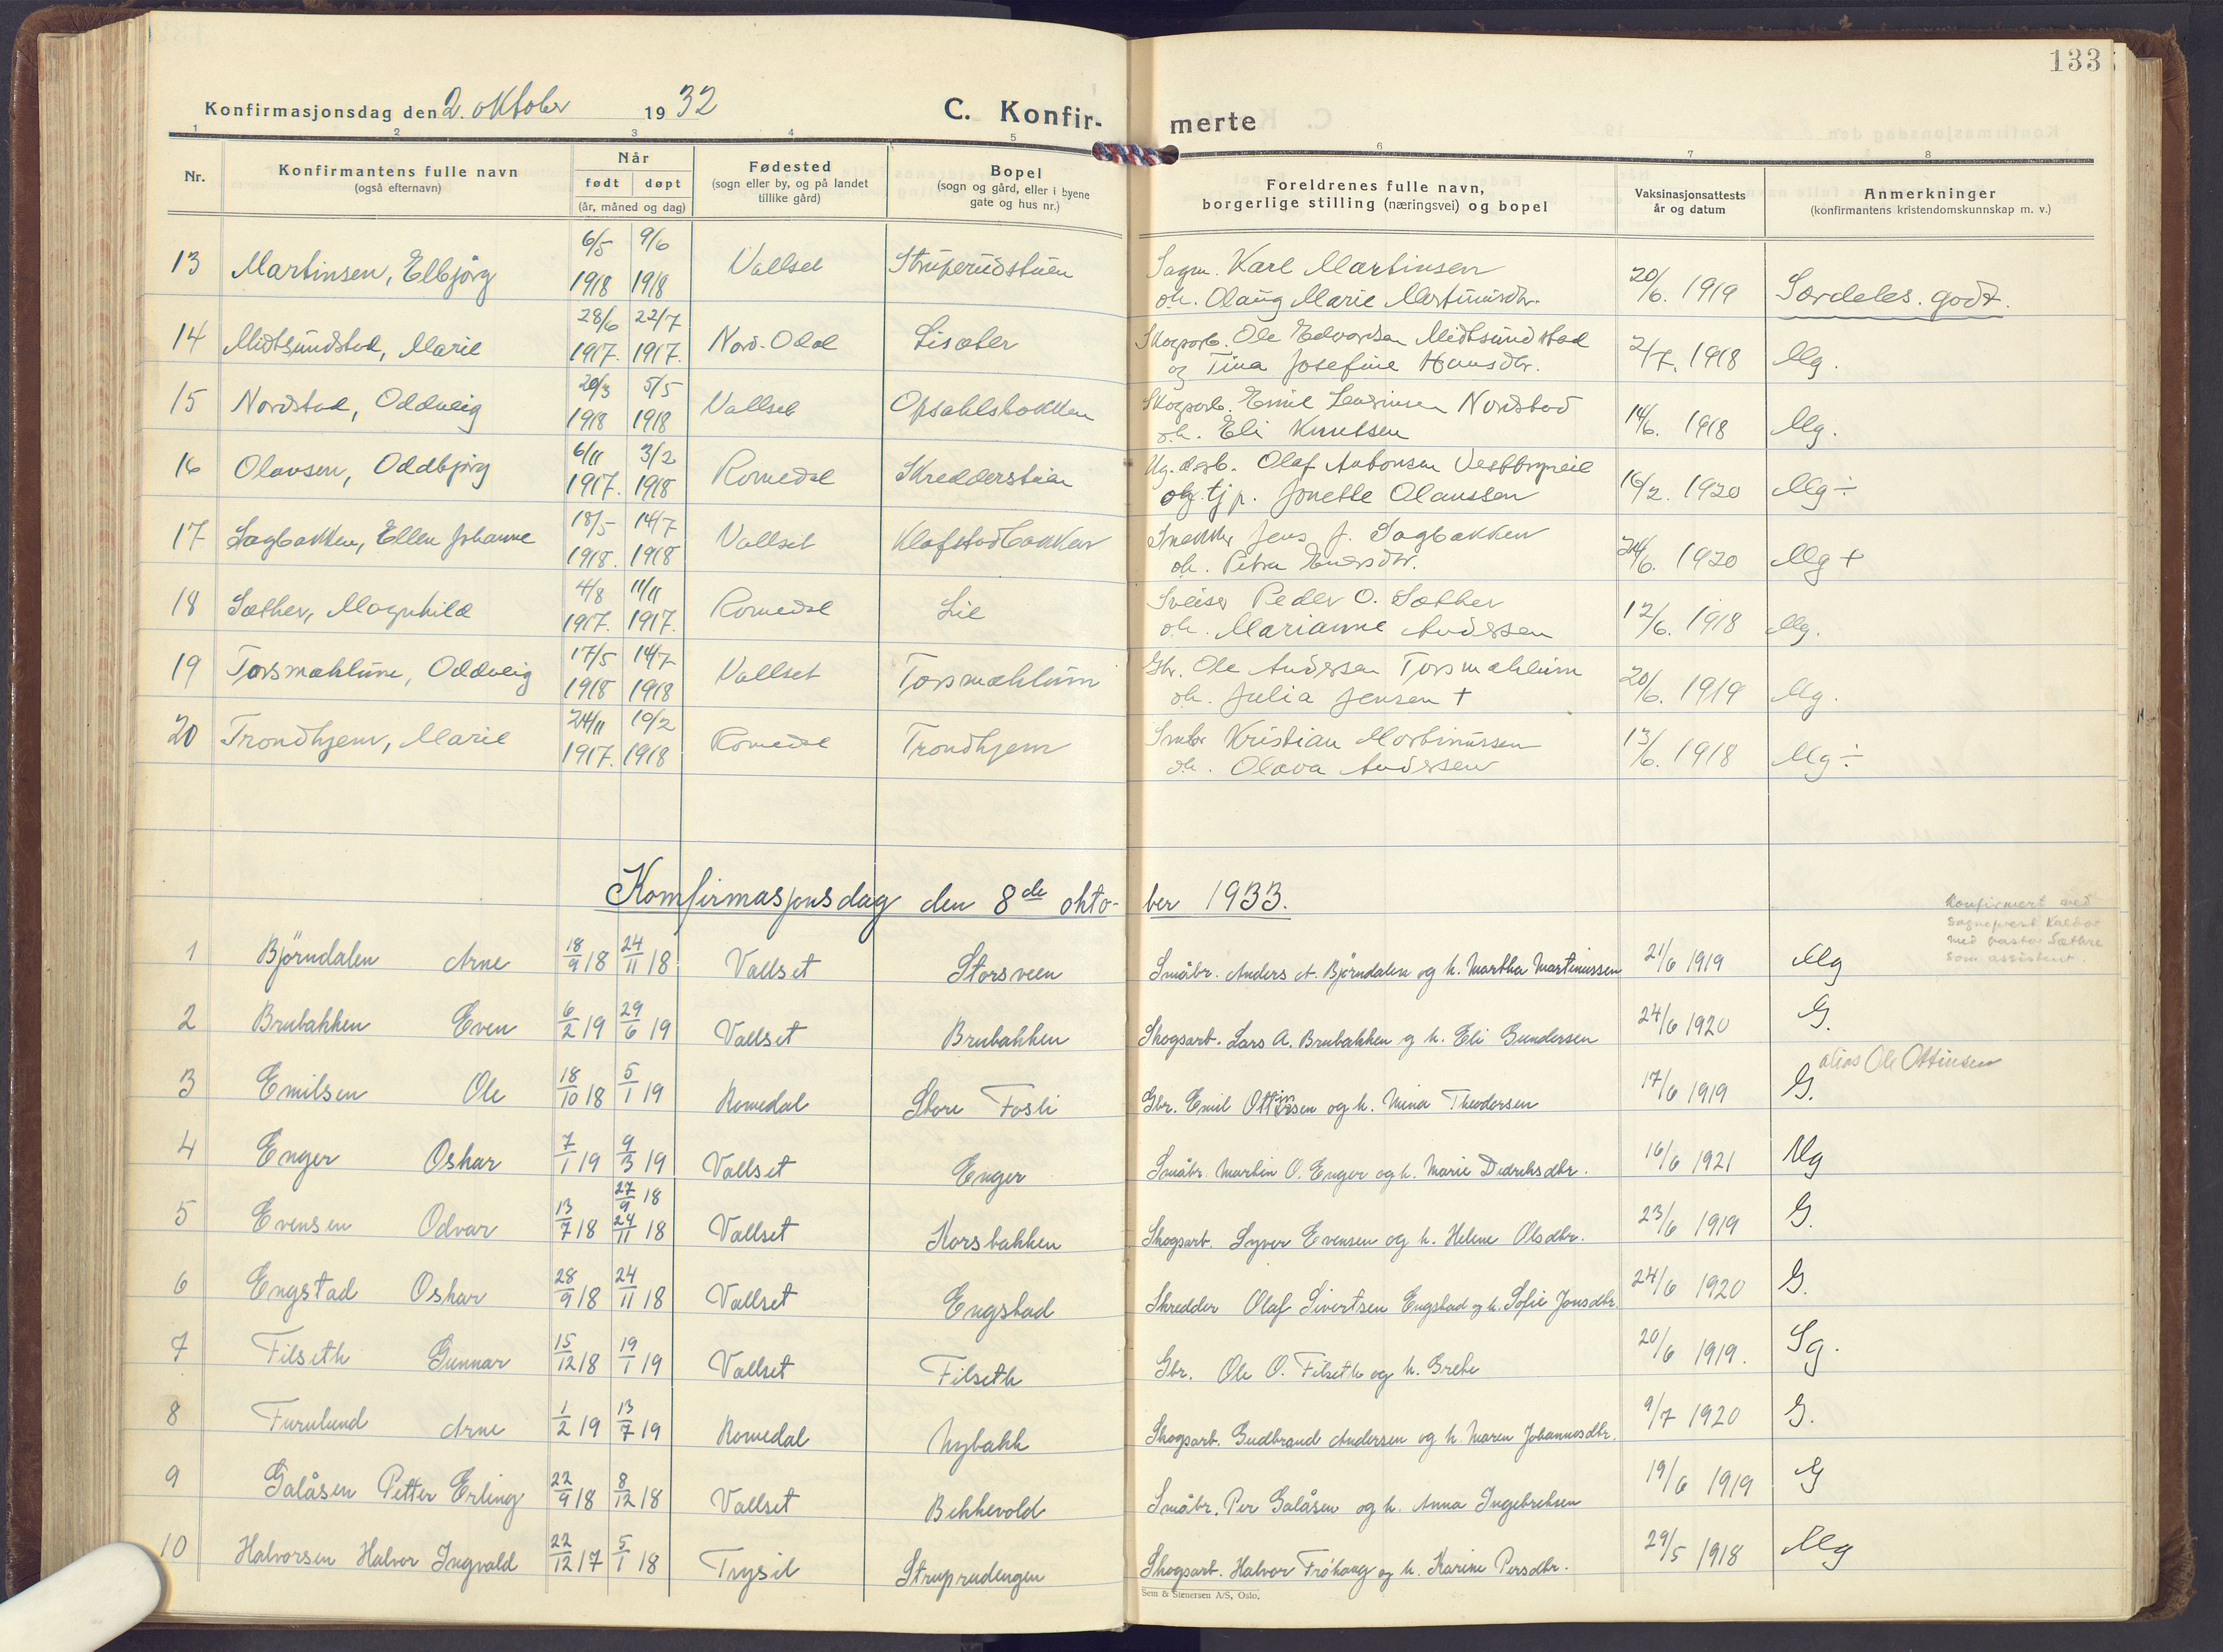 133
Konfirmasjonsdag den 2. oktober 1932
C. Konfir- merte
1 2 3 4 5 6 7 8
Nr.
Konfirmantens fulle navn
(også efternavn)
Når
født døpt
(år, måned og dag)
Fødested
(sogn eller by, og på landet
tillike gård)
Bopel
(sogn og gård, eller i byene
gate og hus nr.)
Foreldrenes fulle navn,
borgerlige stilling (næringsvei) og bopel
Vaksinasjonsattests
år og datum
Anmerkninger
(konfirmantens kristendomskunnskap m. v.)
13 Martinsen, Elbjörg 6/5 1918 9/6 1918 Vallset Struperudstuen Sagm. Karl Martinsen 20/6. 1919 Særdeles. godt.
oh. Olaug Marie Martinusdtr.
14 Midtsundstad, Marie 28/6 1917. 22/7 1917. Nord-Odal Lisæter Skogsarb. Ole Edvardsen Midtsundstad 2/7. 1918 Mg.
og Tina Josefine Hansdtr.
15 Nordstad, Oddveig 20/3 1918 5/5 1918 Vallset Opsahlsbakken Skogsarb. Emil Nordstad 14/6. 1918 Mg.
oh. Eli Knutsen
16 Olavsen, Oddbjörg 6/11 1917. 3/2 1918 Romedal Skredderstuen Ug. Olaf Antonsen 16/2. 1920 Mg ÷
og tj p. Jonette Olaussen
17 Sagbakken, Ellen Johanne 18/5 1918. 14/7 1918 Vallset Klafstadbakken Snekker Jens J. Sagbakken 24/6. 1920 Mg +
oh. Petra
18 Sæther, Magnhild 4/8 1917. 11/11 1917. Romedal Lie Sveiser Peder O. Sæther 12/6. 1918 Mg.
oh. Marianne Andersen
19 Torsmæhlum, Oddveig 17/5 1918 14/7 1918 Vallset Torsmæhlum Gbr. Ole Andersen Torsmæhlum 20/6. 1919 Mg.
oh. Julia Jensen +
20 Trondhjem, Marie 24/11 1917. 10/2 1918 Romedal Trondhjem Smbr Kristian Martinussen 13/6. 1918 Mg ÷
oh. Olava Andersen
Komfirmasjonsdag den 8de okto- ber 1933.
Konfirmert ved
sogneprest
med pastor Sæthre
som assistent.
1 Bjørndalen Arne 18/9 18 24/11 18 Vallset Storsveen Småbr. Anders A. Bjørndalen og h. Martha Martinussen 21/6 1919 Mg
2 Brubakken Even 6/2 19 29/6 19 Vallset Brubakken Skogsarb. Lars A. Brubakken og h. Eli Gundersen 24/6 1920 G.
3 Emilsen Ole 18/10 18 5/1 19 Romedal Store Fosli Gbr. Emil Ottinsen og h. Mina Theodorsen 17/6 1919 G. alias Ole Ottinsen
4 Enger Oskar 7/1 19 9/3 19 Vallset Enger Småbr. Martin O. Enger og h. Marie Didriksdtr. 16/6 1921 Mg
5 Evensen Odvar 13/7 18 27/9 18 24/11 18 Vallset Korsbakken Skogsarb. Syver Evensen og h. Helene Olsdtr. 23/6 1919 G.
6 Engstad Oskar 28/9 18 24/11 18 Vallset Engstad Skredder Olaf Sivertsen Engstad og h. Sofie Jonsdtr. 24/6 1920 G.
7 Filseth Gunnar 15/12 18 19/1 19 Vallset Filseth Gbr. Ole O. Filseth og h. Grethe 20/6 1919. Sg.
8 Furulund Arne 1/2 19 13/7 19 Romedal Nybakk Skogsarb. Gudbrand Andersen og h. Maren Johannesdtr. 9/7 1920 G.
9 Galåsen Petter Erling 22/9 18 8/12 18 Vallset Bekkevold Småbr. Per Galåsen og h. Anna Ingebretsen 19/6 1919 G
10 Halvorsen Halvor Ingvald 22/12 17 5/1 18 Trysil Struprudengen Skogsarb. Halvor Frøhaug og h. Karine Persdtr. 29/5 1918 Mg
Sem & Stenersen A/S, Oslo.